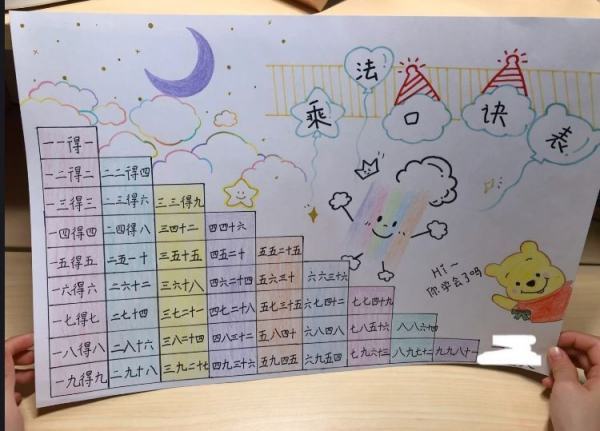 乘法口诀表
一一得一
一二得二 二二得四
一三得三 二三得六 三三得九
一四得四 二四得八 三四十二 四四十六
一五得五 二五一十 三五十五 四五二十 五五二十五
一六得六 二六十二 三六十八 四六二十四 五六三十 六六三十六
一七得七 二七十四 三七二十一 四七二十八 五七三十五 六七四十二 七七四十九
一八得八 二八十六 三八二十四 四八三十二 五八四十 六八四八 七八五十六 八八六十四
一九得九 二九十八 三九二十七 四九三十六 五九四五 六九五四 七九六十三 八九七十二 九九八十一
Hi~
你学会了吗